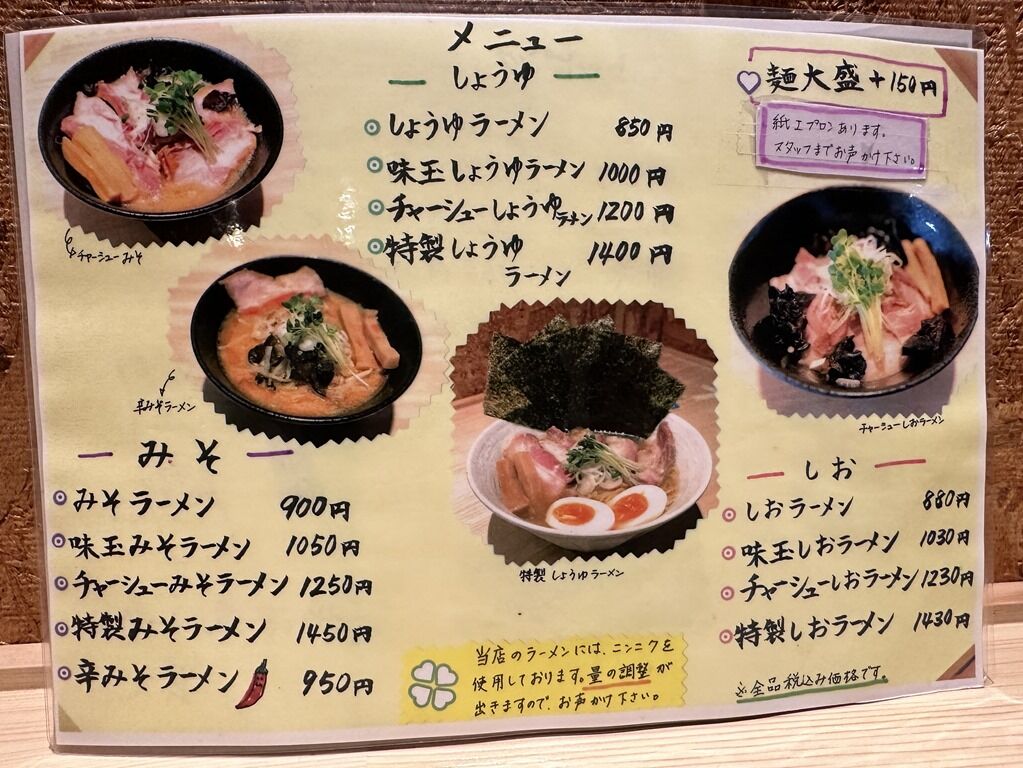 メニュー
しょうゆ
しょうゆラーメン 850円
味玉しょうゆラーメン 1000円
チャーシューしょうゆラーメン 1200円
特製しょうゆ 1400円
ラーメン
麺大盛+150円
紙エプロンあります。
スタッフまでお声かけ下さい。
チャーシューみそ
辛みそラーメン
チャーシューしおラーメン
特製しょうゆラーメン
みそ
みそラーメン 900円
味玉みそラーメン 1050円
チャーシューみそラーメン 1250円
特製みそラーメン 1450円
辛みそラーメン 950円
しお
しおラーメン 880円
味玉しおラーメン 1030円
チャーシューしおラーメン 1230円
特製しおラーメン 1430円
当店のラーメンには、ニンニクを
使用しております。量の調整が
出きますので、お声かけ下さい。
※全品税込み価格です。